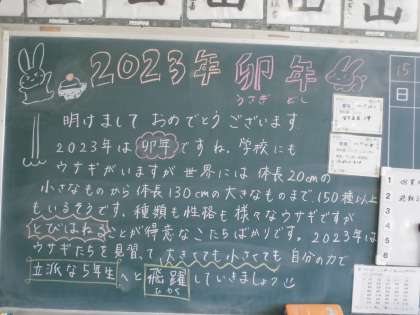 2023年 卯年
うさぎ どし
明けまして おめでとうございます
2023年は卯年ですね。学校にも
ウサギがいますが世界には体長20cmの
小さなものから体長130cmの大きなものまで150種以上
もいるそうです。種類も性格も様々なウサギですが
とびはねることが得意なこたちばかりです。2023年は
ウサギたちを見習って大きくても小さくても自分の力で
立派な5年生へと飛躍していきましょう
ひやく
15
日
山